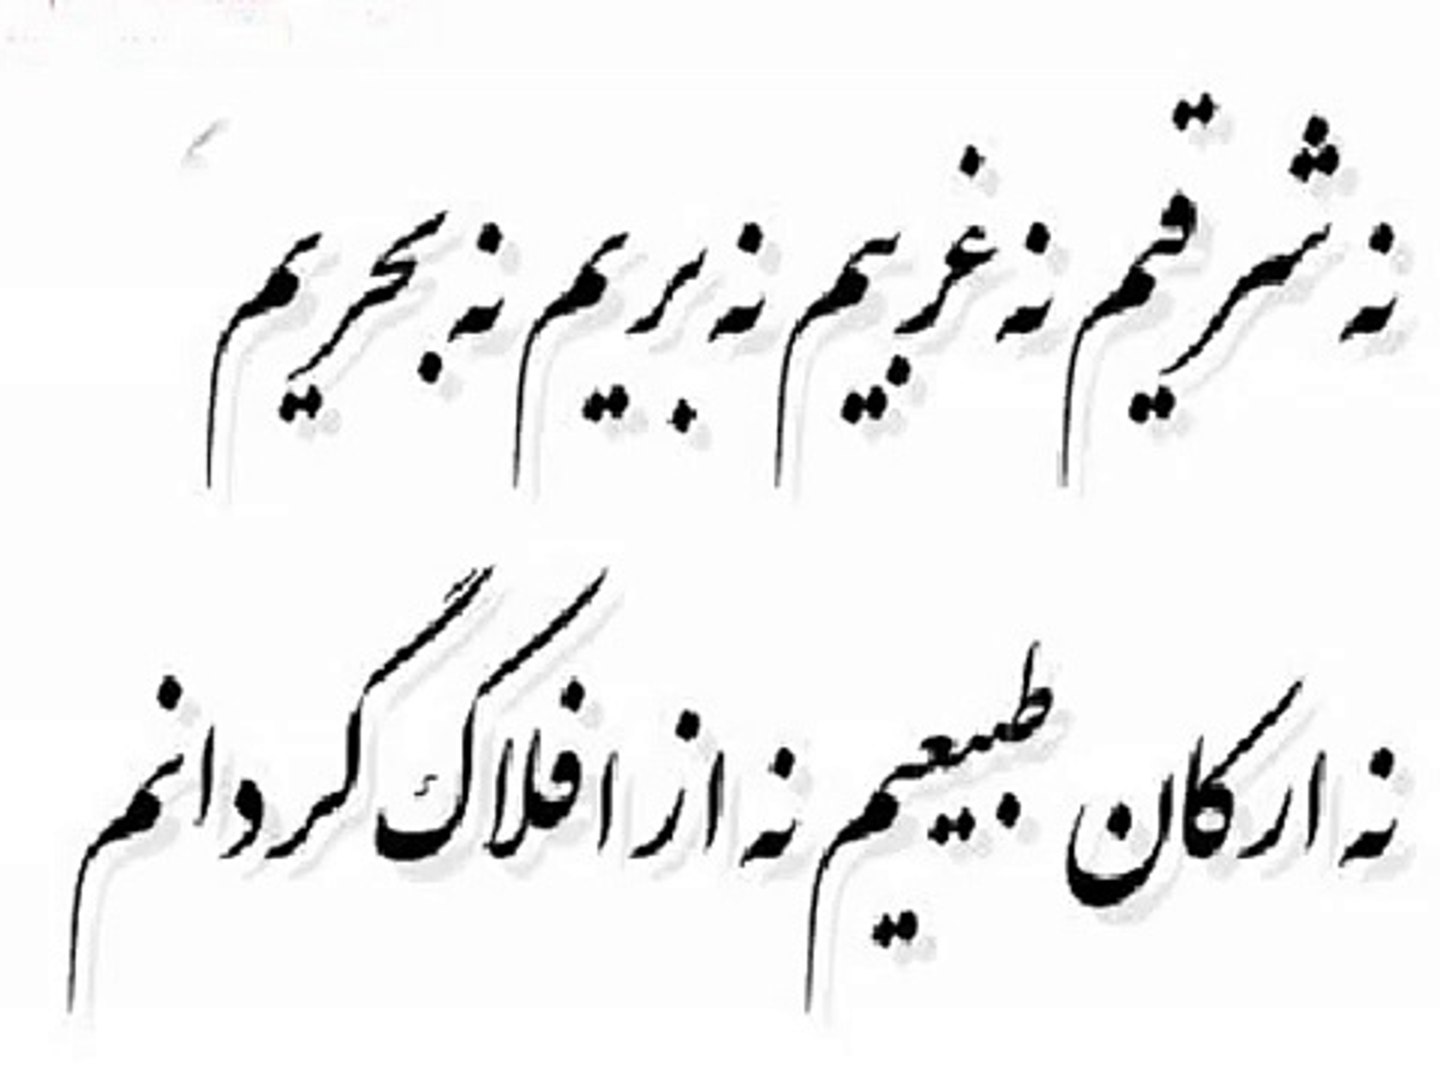 نه شرقیم نه غربیم نه بریم نه بحریم
نه ارکان طبیعیم نه از افلاک گردانم